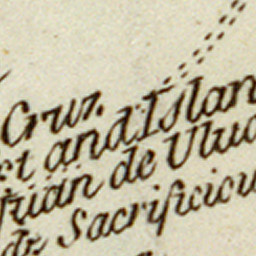 Cruz,
and Islan
Juan de Ulua
Sacrificiou